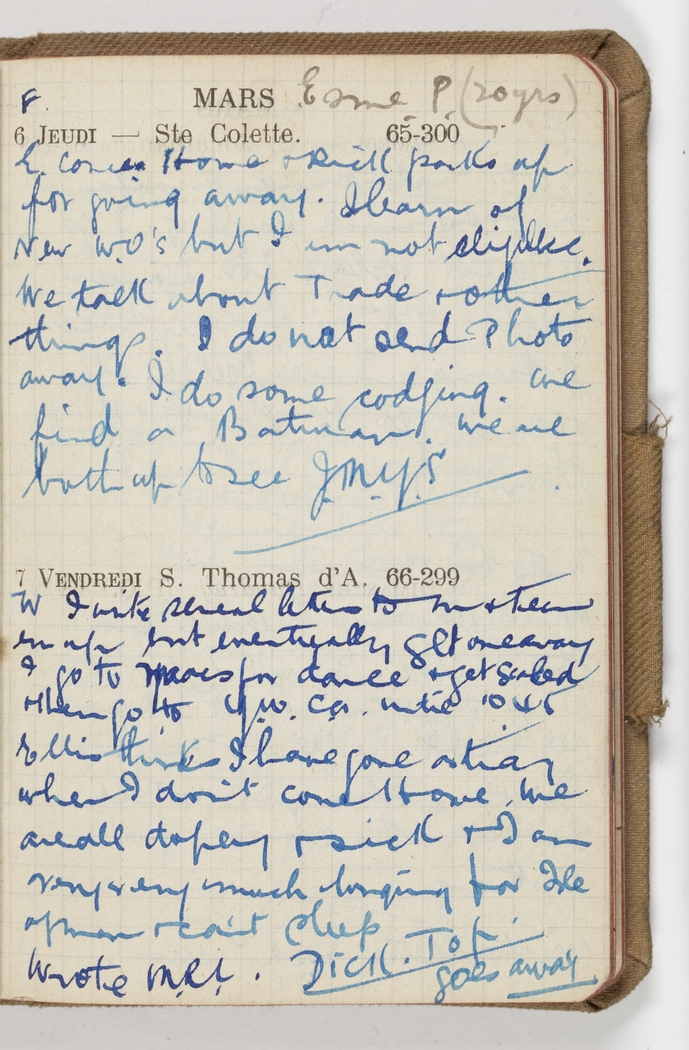 F. MARS Esme P. (20yrs)
6 JEUDI — Ste Colette. 65-300
E. comes Home & Dick packs up
for going away. I learn of
new W.O's but I am not eligible.
We talk about Trade & other
things. I do not send Photo
away. I do some codging. We
find a Batman. we are
both up to see J.M.Y.S
7 VENDREDI S. Thomas d'A. 66-299
W I write several letters to & tear
em up but eventually get one away
I go to for dance & get
& then go to Y.W.Ca. until 10 45
Ellis thinks I have gone astray
when I don't come Home. We
are all dopey & sick & I am
very very much longing for
& can't sleep
Wrote M.R.L. Dick. Top.
goes away